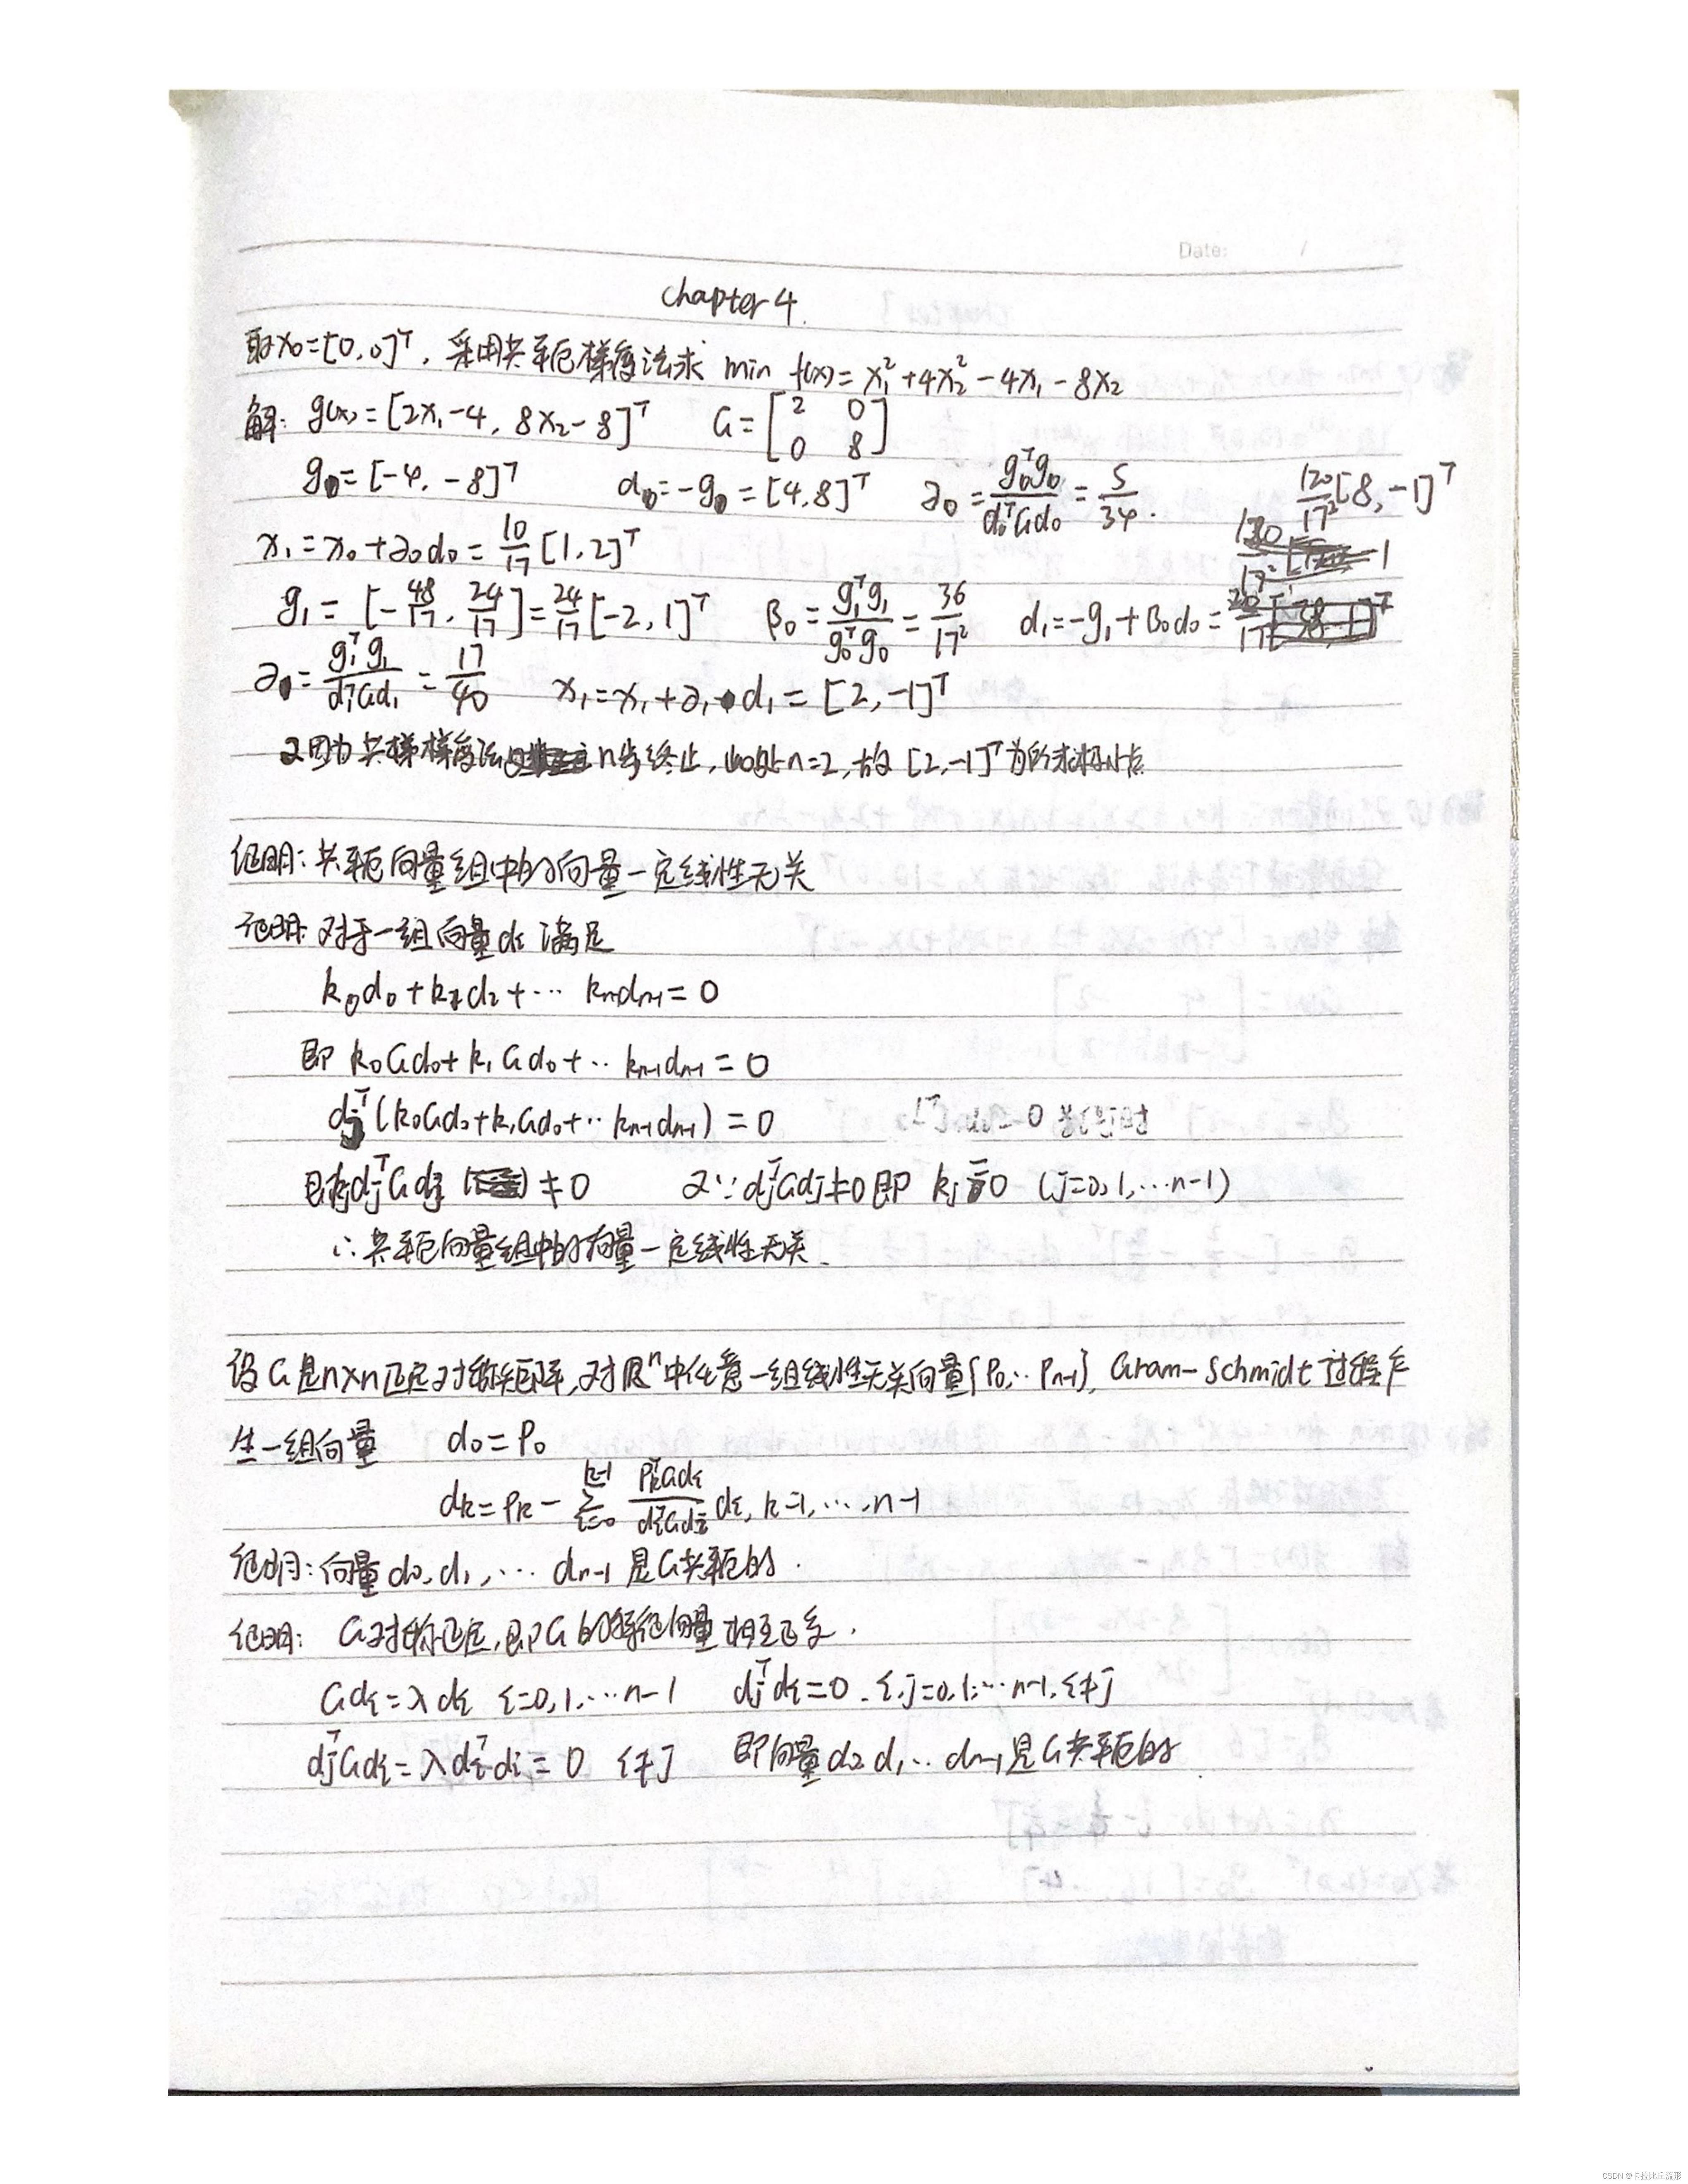 Date: /
Chapter 4.
取x₀=[0,0]ᵀ, 采用共轭梯度法求 min f(x)=x₁²+4x₂²-4x₁-8x₂
解: g(x)=[2x₁-4, 8x₂-8]ᵀ G=[2 0; 0 8]
g₀=[-4,-8]ᵀ d₀=-g₀=[4,8]ᵀ ∂₀=g₀ᵀg₀/d₀ᵀGd₀=5/34. 120/17²[8,-1]ᵀ
x₁=x₀+∂₀d₀=10/17[1,2]ᵀ
g₁=[-48/17, 24/17]=24/17[-2,1]ᵀ β₀=g₁ᵀg₁/g₀ᵀg₀=36/17² d₁=-g₁+β₀d₀=
∂₁=g₁ᵀg₁/d₁ᵀGd₁=17/40 x₁=x₁+∂₁d₁=[2,-1]ᵀ
又因为共梯梯度法n步终止, 此处n=2, 故[2,-1]ᵀ为所求极小点
证明: 共轭向量组中的向量一定线性无关
证明: 对于一组向量dᵢ满足
k₀d₀+k₁d₂+… kₙ₋₁dₙ₋₁=0
即 k₀Gd₀+k₁Gd₀+… kₙ₋₁dₙ₋₁=0
dⱼᵀ(k₀Gd₀+k₁Gd₀+… kₙ₋₁dₙ₋₁)=0
即kⱼdⱼᵀGdⱼ ≠0 又∵dⱼᵀGdⱼ≠0即 kⱼ=0 (j=0,1,…n-1)
∴共轭向量组中的向量一定线性无关.
设G是n×n正定对称矩阵, 对Rⁿ中任意一组线性无关向量{P₀,…Pₙ₋₁}, Gram-Schmidt过程产
生一组向量 d₀=P₀
dₖ=Pₖ-∑ᵢ₌₀ᵏ⁻¹ PₖᵀGdᵢ/dᵢᵀGdᵢ dᵢ, k=1,…,n-1
证明: 向量d₀,d₁,…dₙ₋₁是G共轭的.
证明: G对称正定, 即G的特征向量相互正交.
Gdᵢ=λdᵢ i=0,1,…n-1 dⱼᵀdᵢ=0. i,j=0,1,…n-1, i≠j
dⱼᵀGdᵢ=λdᵢᵀdᵢ=0 i≠j 即向量d₀,d₁…dₙ₋₁是G共轭的.
CSDN @卡拉比丘流形